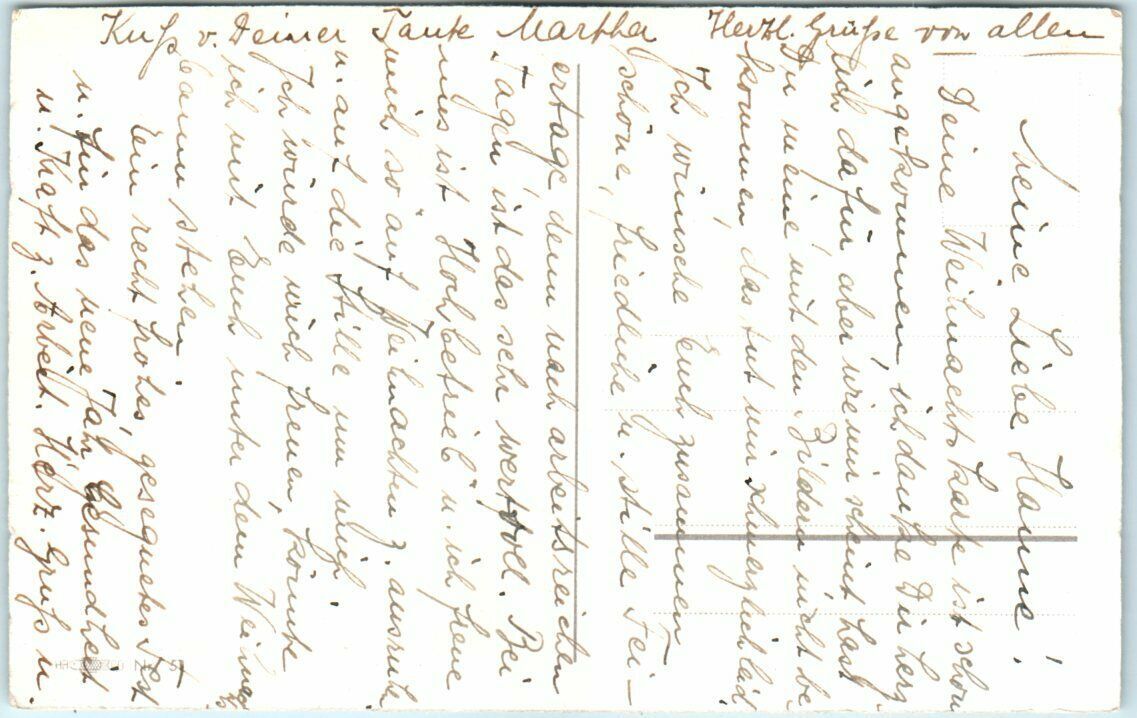 Meine Liebe Hanne!
Deine Weihnachtskarte ist schon
angekommen, ich danke Dir herz
lich dafür, aber wie mir scheint hast
Du meine mit den Bildern nicht be
kommen, das tut mir schmerzlich leid
Ich wünsche Euch zusammen
schöne, friedliche u. stille Fei-
ertage, denn nach arbeitsreichen
Tagen ist das sehr wertvoll. Bei
uns ist Hochbetrieb u. ich freue
mich so auf Weihnachten z. ausruhn
u. auf die Stille um mich.
Ich würde mich freuen, könnte
ich mit Euch unter dem Weihnachts
baum stehen.
Ein recht frohes, gesegnetes Fest
u. für das neue Jahr Gesundheit
u. Kraft z. Arbeit. Herz. Gruß u.
Kuß v. Deiner Tante Martha Herzl. Grüße von allen